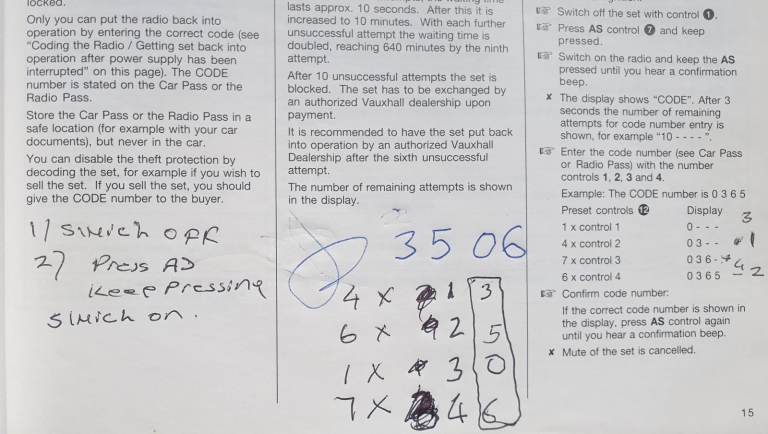 locked.
Only you can put the radio back into
operation by entering the correct code (see
"Coding the Radio / Getting set back into
operation after power supply has been
interrupted" on this page). The CODE
number is stated on the Car Pass or the
Radio Pass.
Store the Car Pass or the Radio Pass in a
safe location (for example with your car
documents), but never in the car.
You can disable the theft protection by
decoding the set, for example if you wish to
sell the set. If you sell the set, you should
give the CODE number to the buyer.
1) SWITCH OFF
2) Press AS
Keep Pressing
SWITCH on.
lasts approx. 10 seconds. After this it is
increased to 10 minutes. With each further
unsuccessful attempt the waiting time is
doubled, reaching 640 minutes by the ninth
attempt.
After 10 unsuccessful attempts the set is
blocked. The set has to be exchanged by
an authorized Vauxhall dealership upon
payment.
It is recommended to have the set put back
into operation by an authorized Vauxhall
Dealership after the sixth unsuccessful
attempt.
The number of remaining attempts is shown
in the display.
3506
4 x 1 3
6 x 2 5
1 x 3 0
7 x 4 6
☞ Switch off the set with control ❶.
☞ Press AS control ❼ and keep
pressed.
☞ Switch on the radio and keep the AS
pressed until you hear a confirmation
beep.
✘ The display shows "CODE". After 3
seconds the number of remaining
attempts for code number entry is
shown, for example "10 - - - - ".
☞ Enter the code number (see Car Pass
or Radio Pass) with the number
controls 1, 2, 3 and 4.
Example: The CODE number is 0 3 6 5
Preset controls ⓬ Display 3
1 x control 1 0 - - -
4 x control 2 0 3 - - 1
7 x control 3 0 3 6 - 4
6 x control 4 0 3 6 5 - 2
☞ Confirm code number:
If the correct code number is shown in
the display, press AS control again
until you hear a confirmation beep.
✘ Mute of the set is cancelled.
15